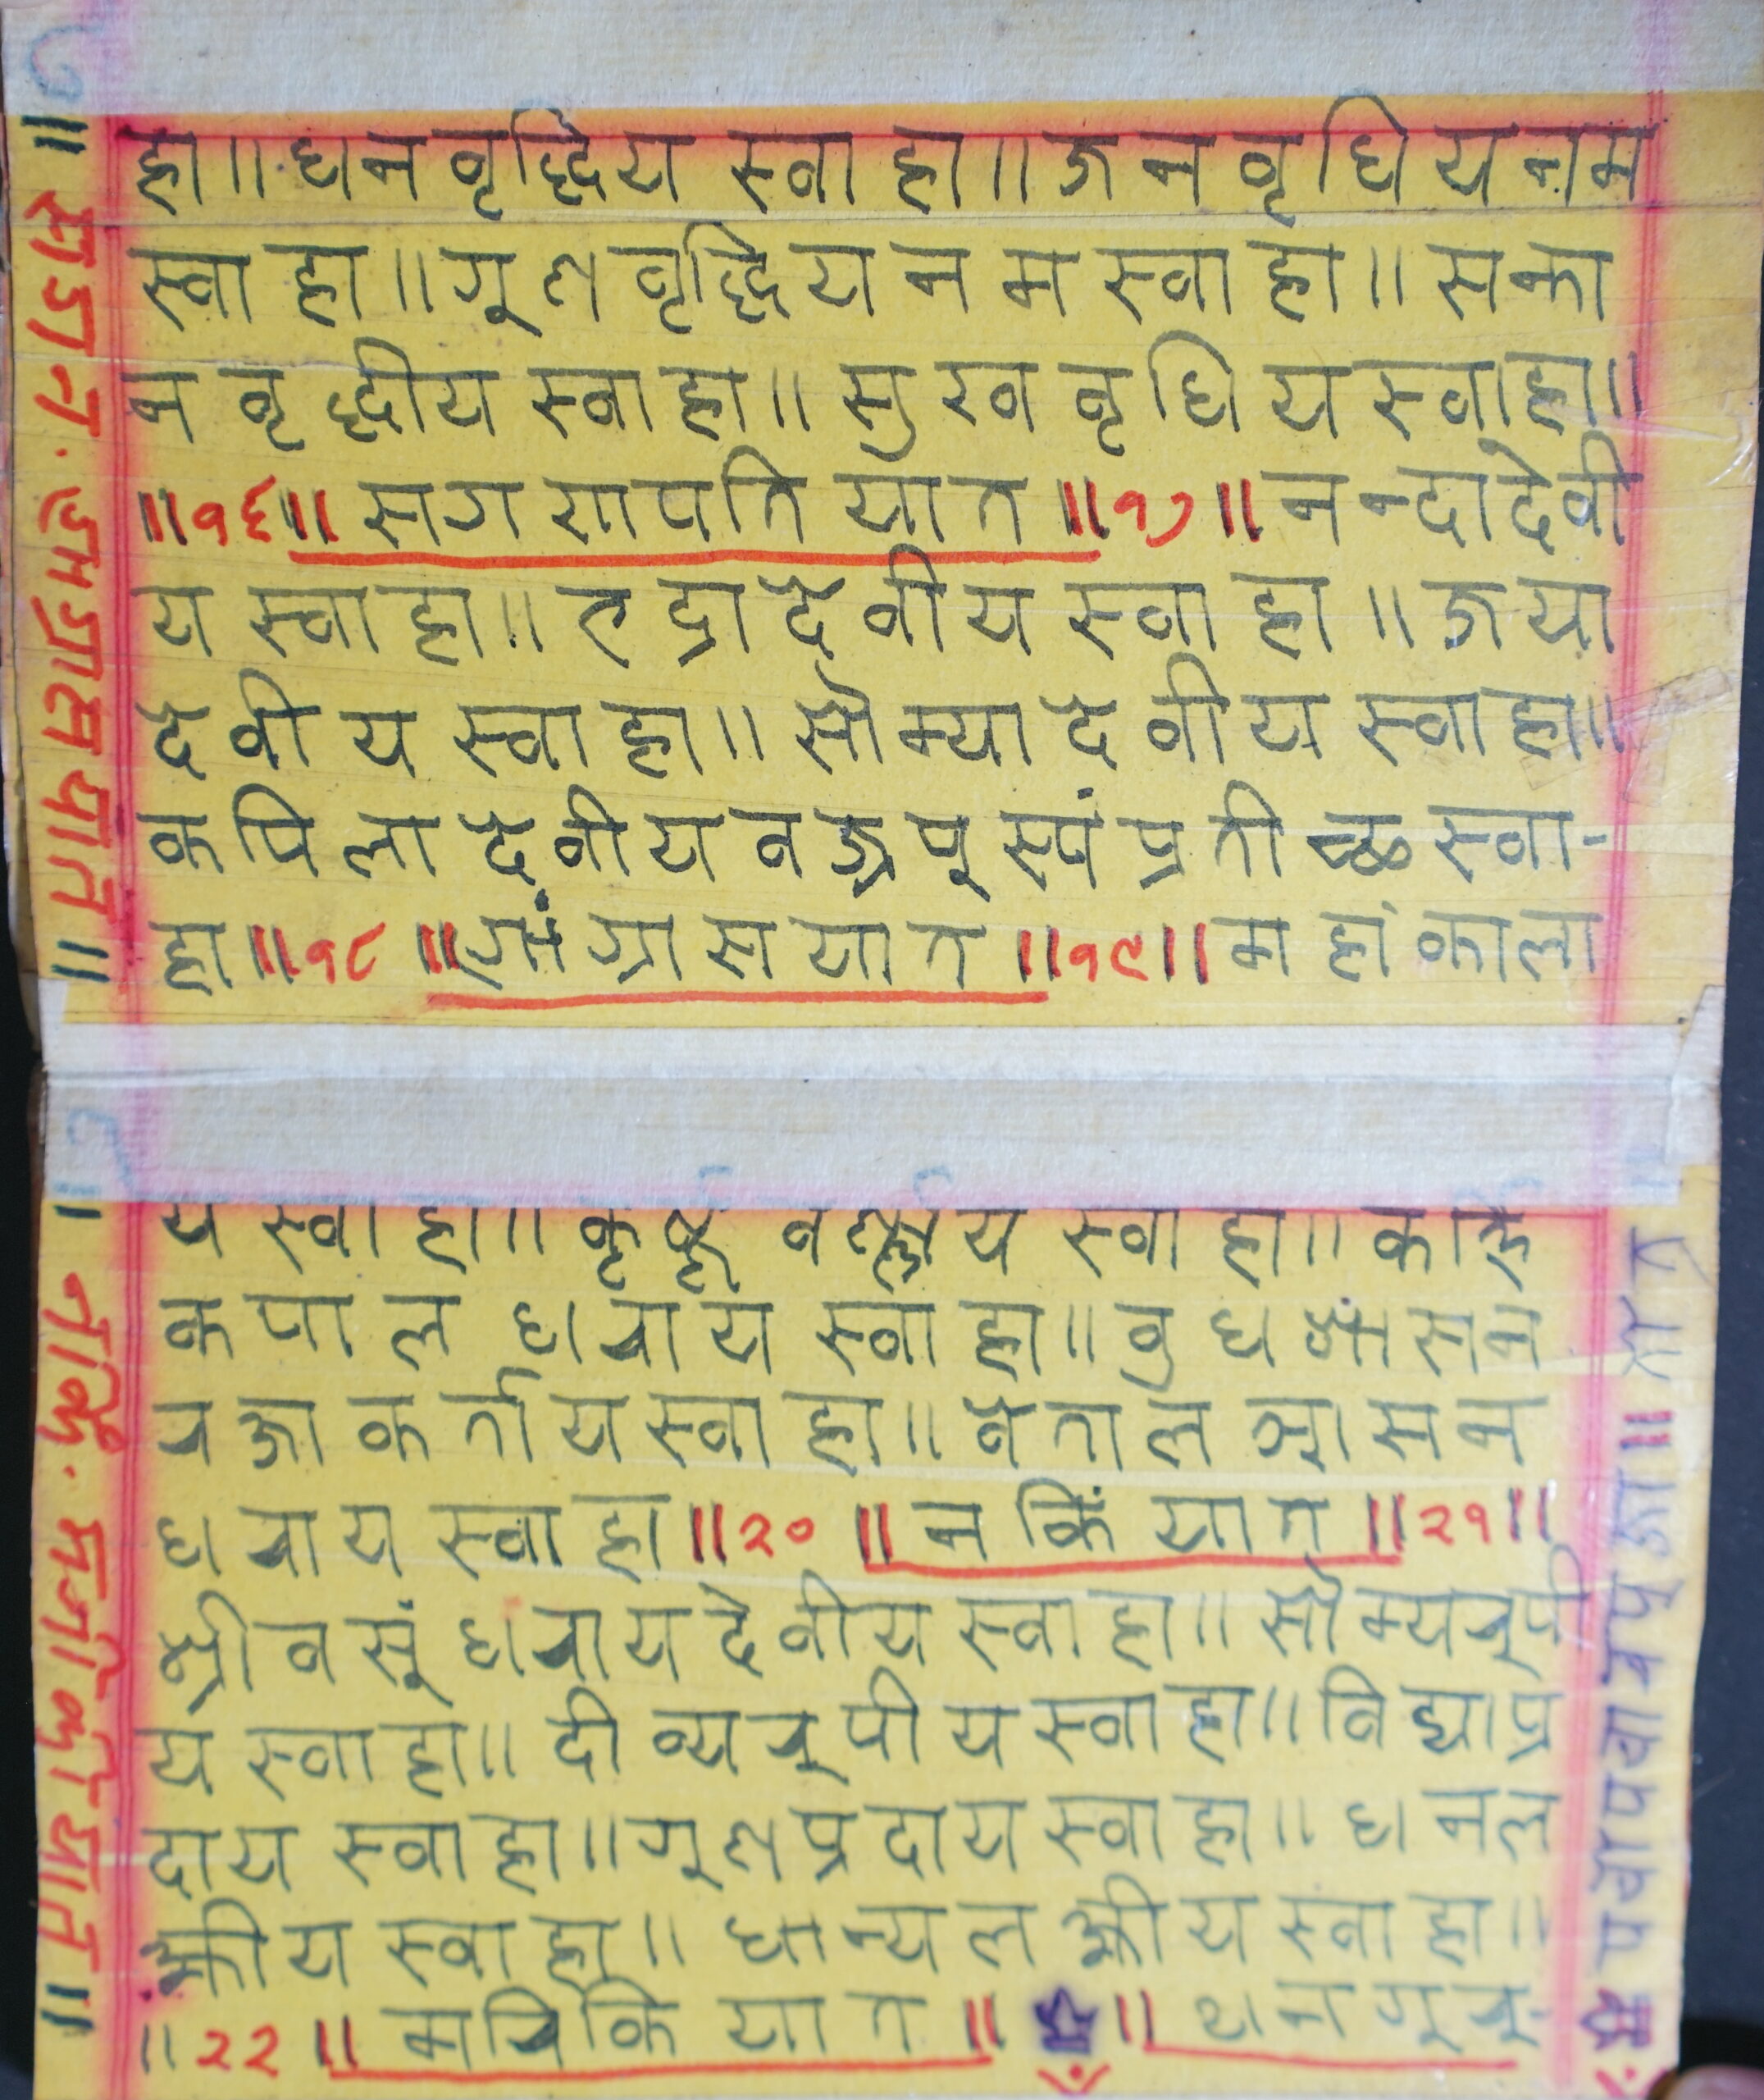 हा॥ धन वृद्धिय स्वाहा॥ जन वृधिय नम
स्वाहा॥ गूण वृद्धिय नम स्वाहा॥ सन्ता
न वृद्धीय स्वाहा॥ सुख वृधिय स्वाहा॥
॥१६॥ सगरापति यात ॥१७॥ नन्दादेवी
य स्वाहा॥ रुद्रादेवीय स्वाहा॥ जया
देवीय स्वाहा॥ सौम्यादेवीय स्वाहा॥
कपिलादेवीय वज्रपूस्पं प्रतीच्छ स्वा-
हा॥१८॥ ग्रास यात ॥१९॥ महांकाला
य स्वाहा॥ कृष्ण वर्णाय स्वाहा॥
कपाल धराय स्वाहा॥ बुध सासन
रजा कर्ताय स्वाहा॥ वेताल आसन
धराय स्वाहा॥२०॥ नकिं यात ॥२१॥
श्री वसूंधराय देवीय स्वाहा॥ सौम्यरूपी
य स्वाहा॥ दीव्यरूपीय स्वाहा॥ विद्याप्र
दाय स्वाहा॥ गूणप्रदाय स्वाहा॥ धनल
क्ष्मीय स्वाहा॥ धान्यलक्ष्मीय स्वाहा॥
॥२२॥ मरिकि यात ॥ ॥ थनगूरू-